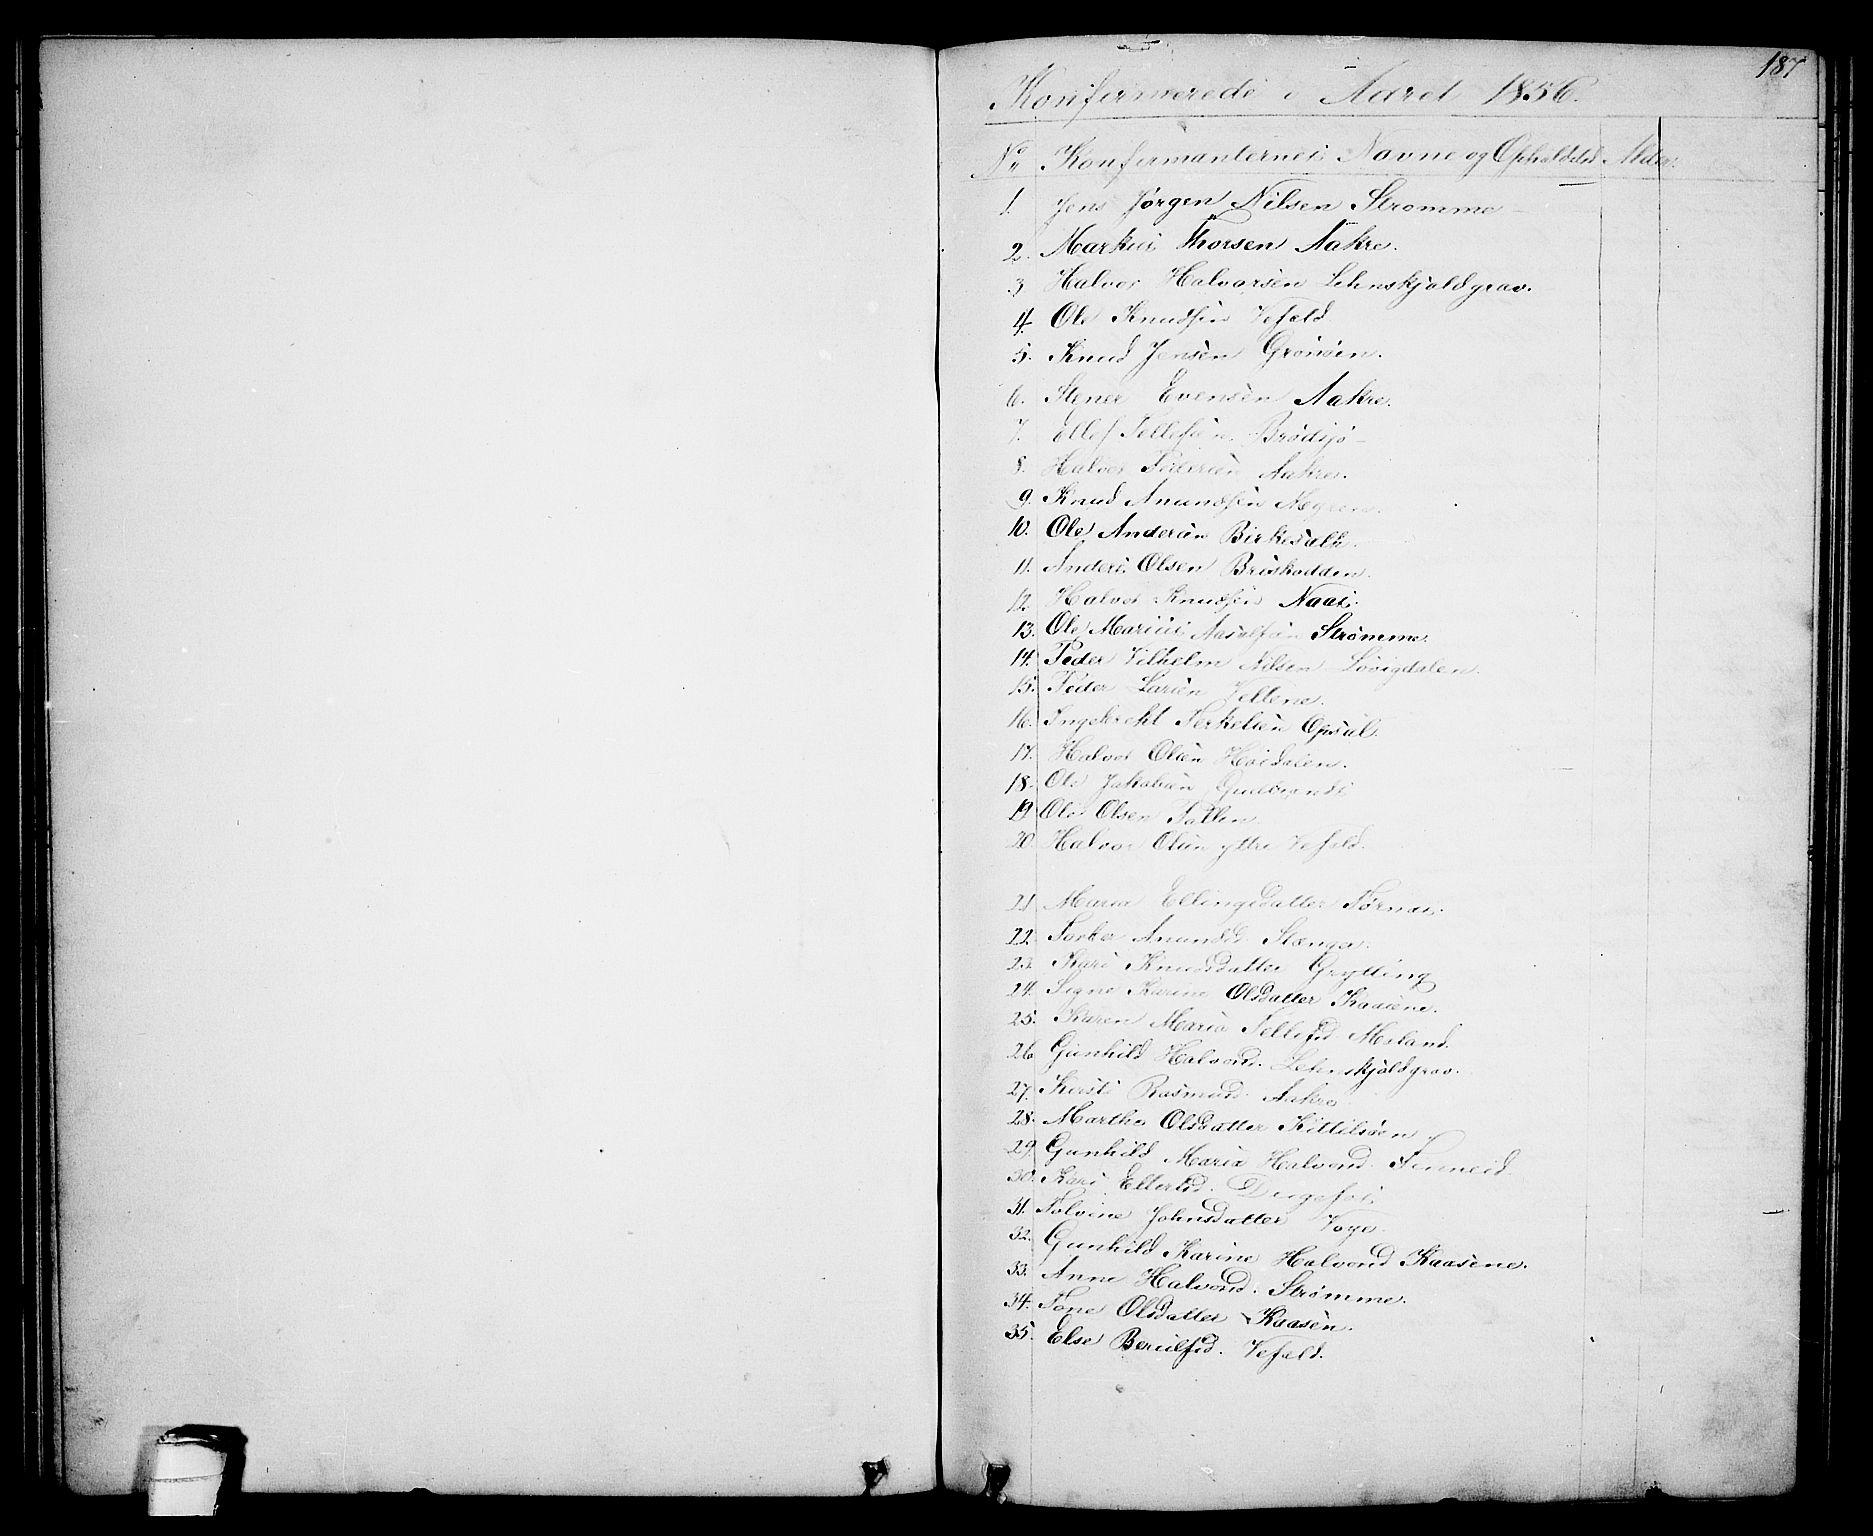 187
Konfirmerede i Aaret 1856.
No Konfirmanternes Navne og Opholdsted Alder.
1. Jens Jørgen Nilsen Strømme
2. Markus Thorsen Aakre.
3 Halvor Halvorsen Lehnskjoldgrav.
4. Ole Knudsen Vefald
5. Knud Jensen Grønsen.
6. Stener Evensen Aakre.
7. Tellefsen Brødsjø
8. Halvor Pedersen Aakre.
9. Knud Amundsen
10. Ole Andersen Birkedalh
11. Anders Olsen Briskodden.
12 Halvor Knudsen Naas.
13. Ole Marius Aasulfsen Strømme.
14. Peder Vilhelm Nilsen Løvigdalen.
15. Peder Larsen Vellene.
16. Ingebreht Terkelsen Opsal.
17. Halvor Olsen Høidalen.
18. Ole Jakobsen
19 Ole Olsen Tallen.
20 Halvor Olsen yttre Vefald.
21 Maria Ellingsdatter Tørnæs.
22. Torbor Amundsd. Stenger.
23. Kari Knudsdatter Grytting
24. Signe Karine Olsdatter Kaasene.
25. Karen Maria Tellefsd. Mosland.
26 Gunhild Halvorsd. Lehnskjoldgrav.
27. Kirsti Rasmusd. Aakre
28. Marthe Olsdatter Kittilsøen
29. Gunhild Maria Halvorsd.
30. Kari Ellefsd.
31. Tolvine Johnsdatter Voje.
32. Gunhild Karine Halvorsd Kaasene.
33. Anne Halvorsd. Strømme.
34. Tone Olsdatter Kaasen.
35. Else Beruilfsd. Vefald.